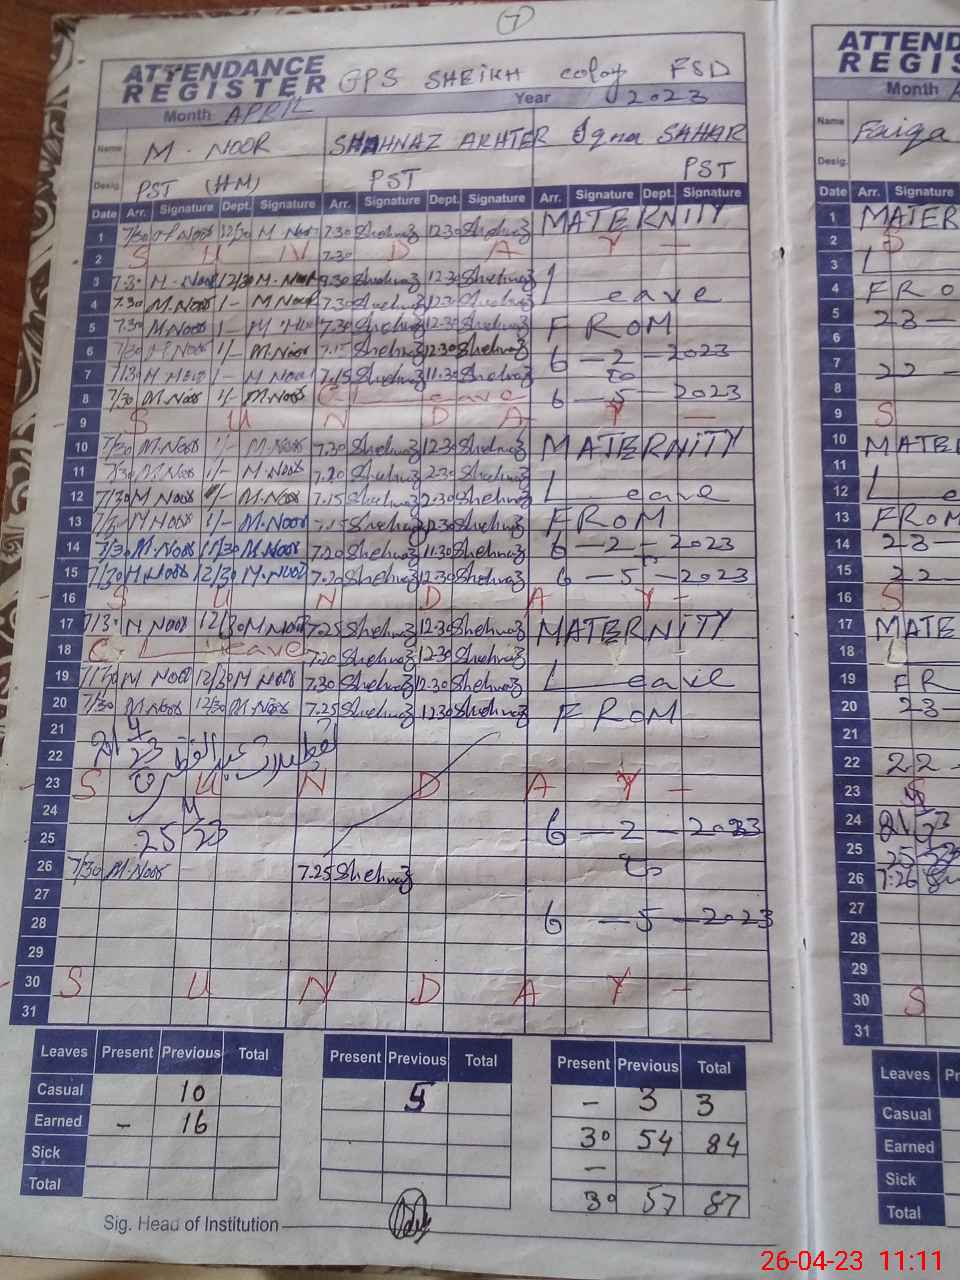 7
ATTENDANCE REGISTER GPS SHEIKH coloy FSD
Month APRIL Year 2023
Name M. NOOR SHAHNAZ AKHTER Iqra SAHAR
Desig. PST (HM) PST PST
Date Arr. Signature Dept. Signature Arr. Signature Dept. Signature Arr. Signature Dept. Signature
1 7/30 M. Noor 12/30 M. Noor 7.30 Shehnaz 12.30 Shehnaz MATERNITY
2 S U N D A Y -
3 7.30 M. Noor 12/30 M. Noor 7.30 Shehnaz 12.30 Shehnaz L
4 7.30 M. Noor 1/- M Noor 7.30 Shehnaz 12.30 Shehnaz eave
5 7.30 M. Noor 1/- M. Noor 7.30 Shehnaz 12.30 Shehnaz FROM
6 7/30 M. Noor 1/- M. Noor 7.15 Shehnaz 12.30 Shehnaz 6-2-2023
7 7/30 M. Noor 1/- M Noor 7.15 Shehnaz 11.30 Shehnaz to
8 7/30 M. Noor 1/- M. Noor C L eave 6-5-2023
9 S U N D A Y -
10 7/30 M. Noor 1/- M. Noor 7.20 Shehnaz 12.30 Shehnaz MATERNITY
11 7/30 M. Noor 1/- M. Noor 7.20 Shehnaz 12.30 Shehnaz
12 7/30 M Noor 1/- M. Noor 7.15 Shehnaz 12.30 Shehnaz L eave
13 M Noor 1/- M. Noor 7.15 Shehnaz 12.30 Shehnaz FROM
14 7/30 M. Noor 11/30 M. Noor 7.20 Shehnaz 11.30 Shehnaz 6-2-2023
to
15 7/30 M. Noor 12/30 M. Noor 7.20 Shehnaz 12.30 Shehnaz 6-5-2023
16 S U N D A Y -
17 7/30 M Noor 12/30 M Noor 7.25 Shehnaz 12.30 Shehnaz MATERNITY
18 C. L eave 7.20 Shehnaz 12.30 Shehnaz
19 7/30 M Noor 12/30 M Noor 7.30 Shehnaz 12.30 Shehnaz L eave
20 7/30 M. Noor 12/30 M. Noor 7.25 Shehnaz 12.30 Shehnaz FROM
21
22 21 4/23
23 S U N D A Y -
24
25 25 4/23 6-2-2023
26 7/30 M. Noor 7.25 Shehnaz to
27
28 6-5-2023
29
30 S U N D A Y -
31
Leaves Present Previous Total Present Previous Total Present Previous Total
Casual 10 5 - 3 3
Earned - 16 30 54 84
Sick -
Total 30 57 87
Sig. Head of Institution
ATTEND
REGIS
Month A
Name Faiqa
Desig.
Date Arr. Signature
1 MATER
2 S
3 L
4 FRO
5 23-
6
7 22-
8
9 S
10 MATE
11
12 L e
13 FROM
14 23-
15 22-
16 S
17 MATE
18 L
19 FR
20 23-
21
22 22-
23 S
24 21 4/23
25 25 4/23
26 7:26
27
28
29
30 S
31
Leaves Pr
Casual
Earned
Sick
Total
26-04-23 11:11